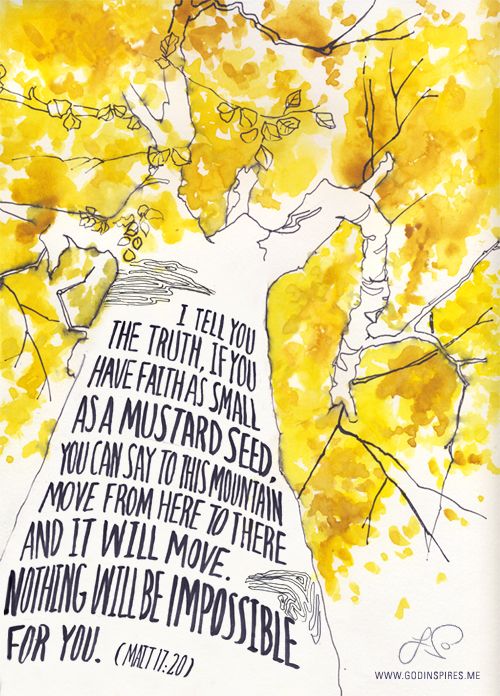 I TELL YOU
THE TRUTH, IF YOU
HAVE FAITH AS SMALL
AS A MUSTARD SEED,
YOU CAN SAY TO THIS MOUNTAIN
MOVE FROM HERE TO THERE
AND IT WILL MOVE.
NOTHING WILL BE IMPOSSIBLE
FOR YOU. (MATT 17:20)
WWW.GODINSPIRES.ME